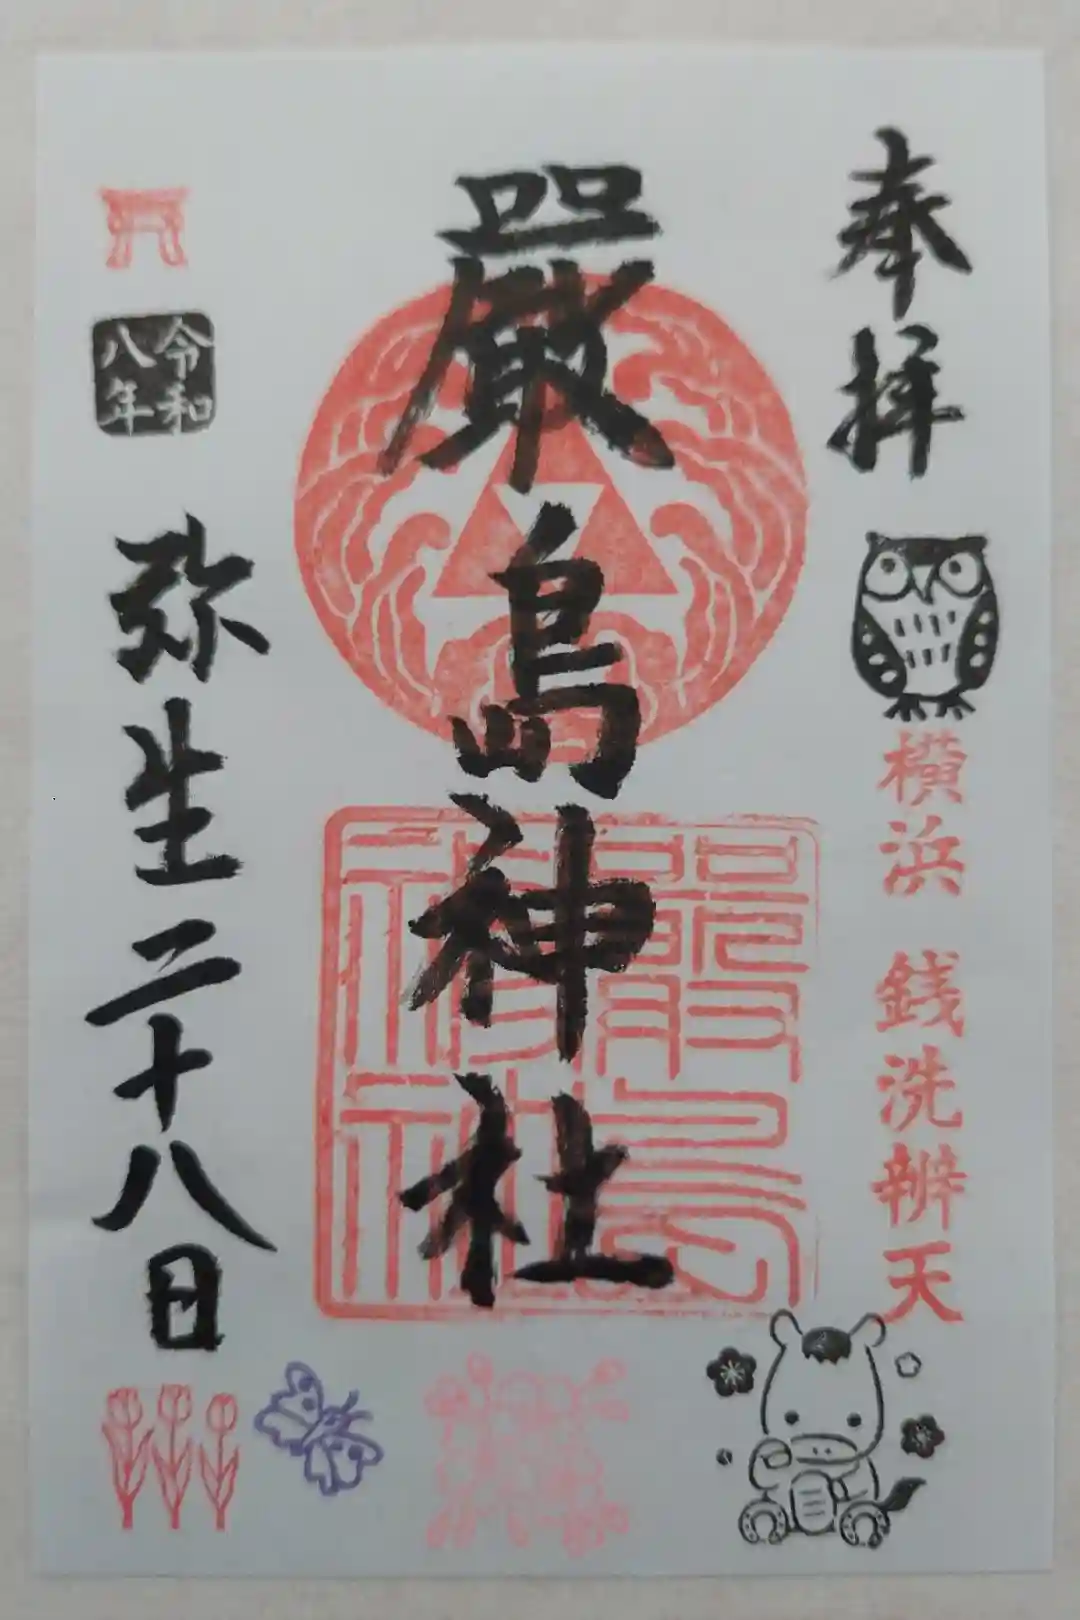 奉拝
横浜 銭洗辨天
嚴島神社
嚴島
神社
令和
八年
弥生二十八日